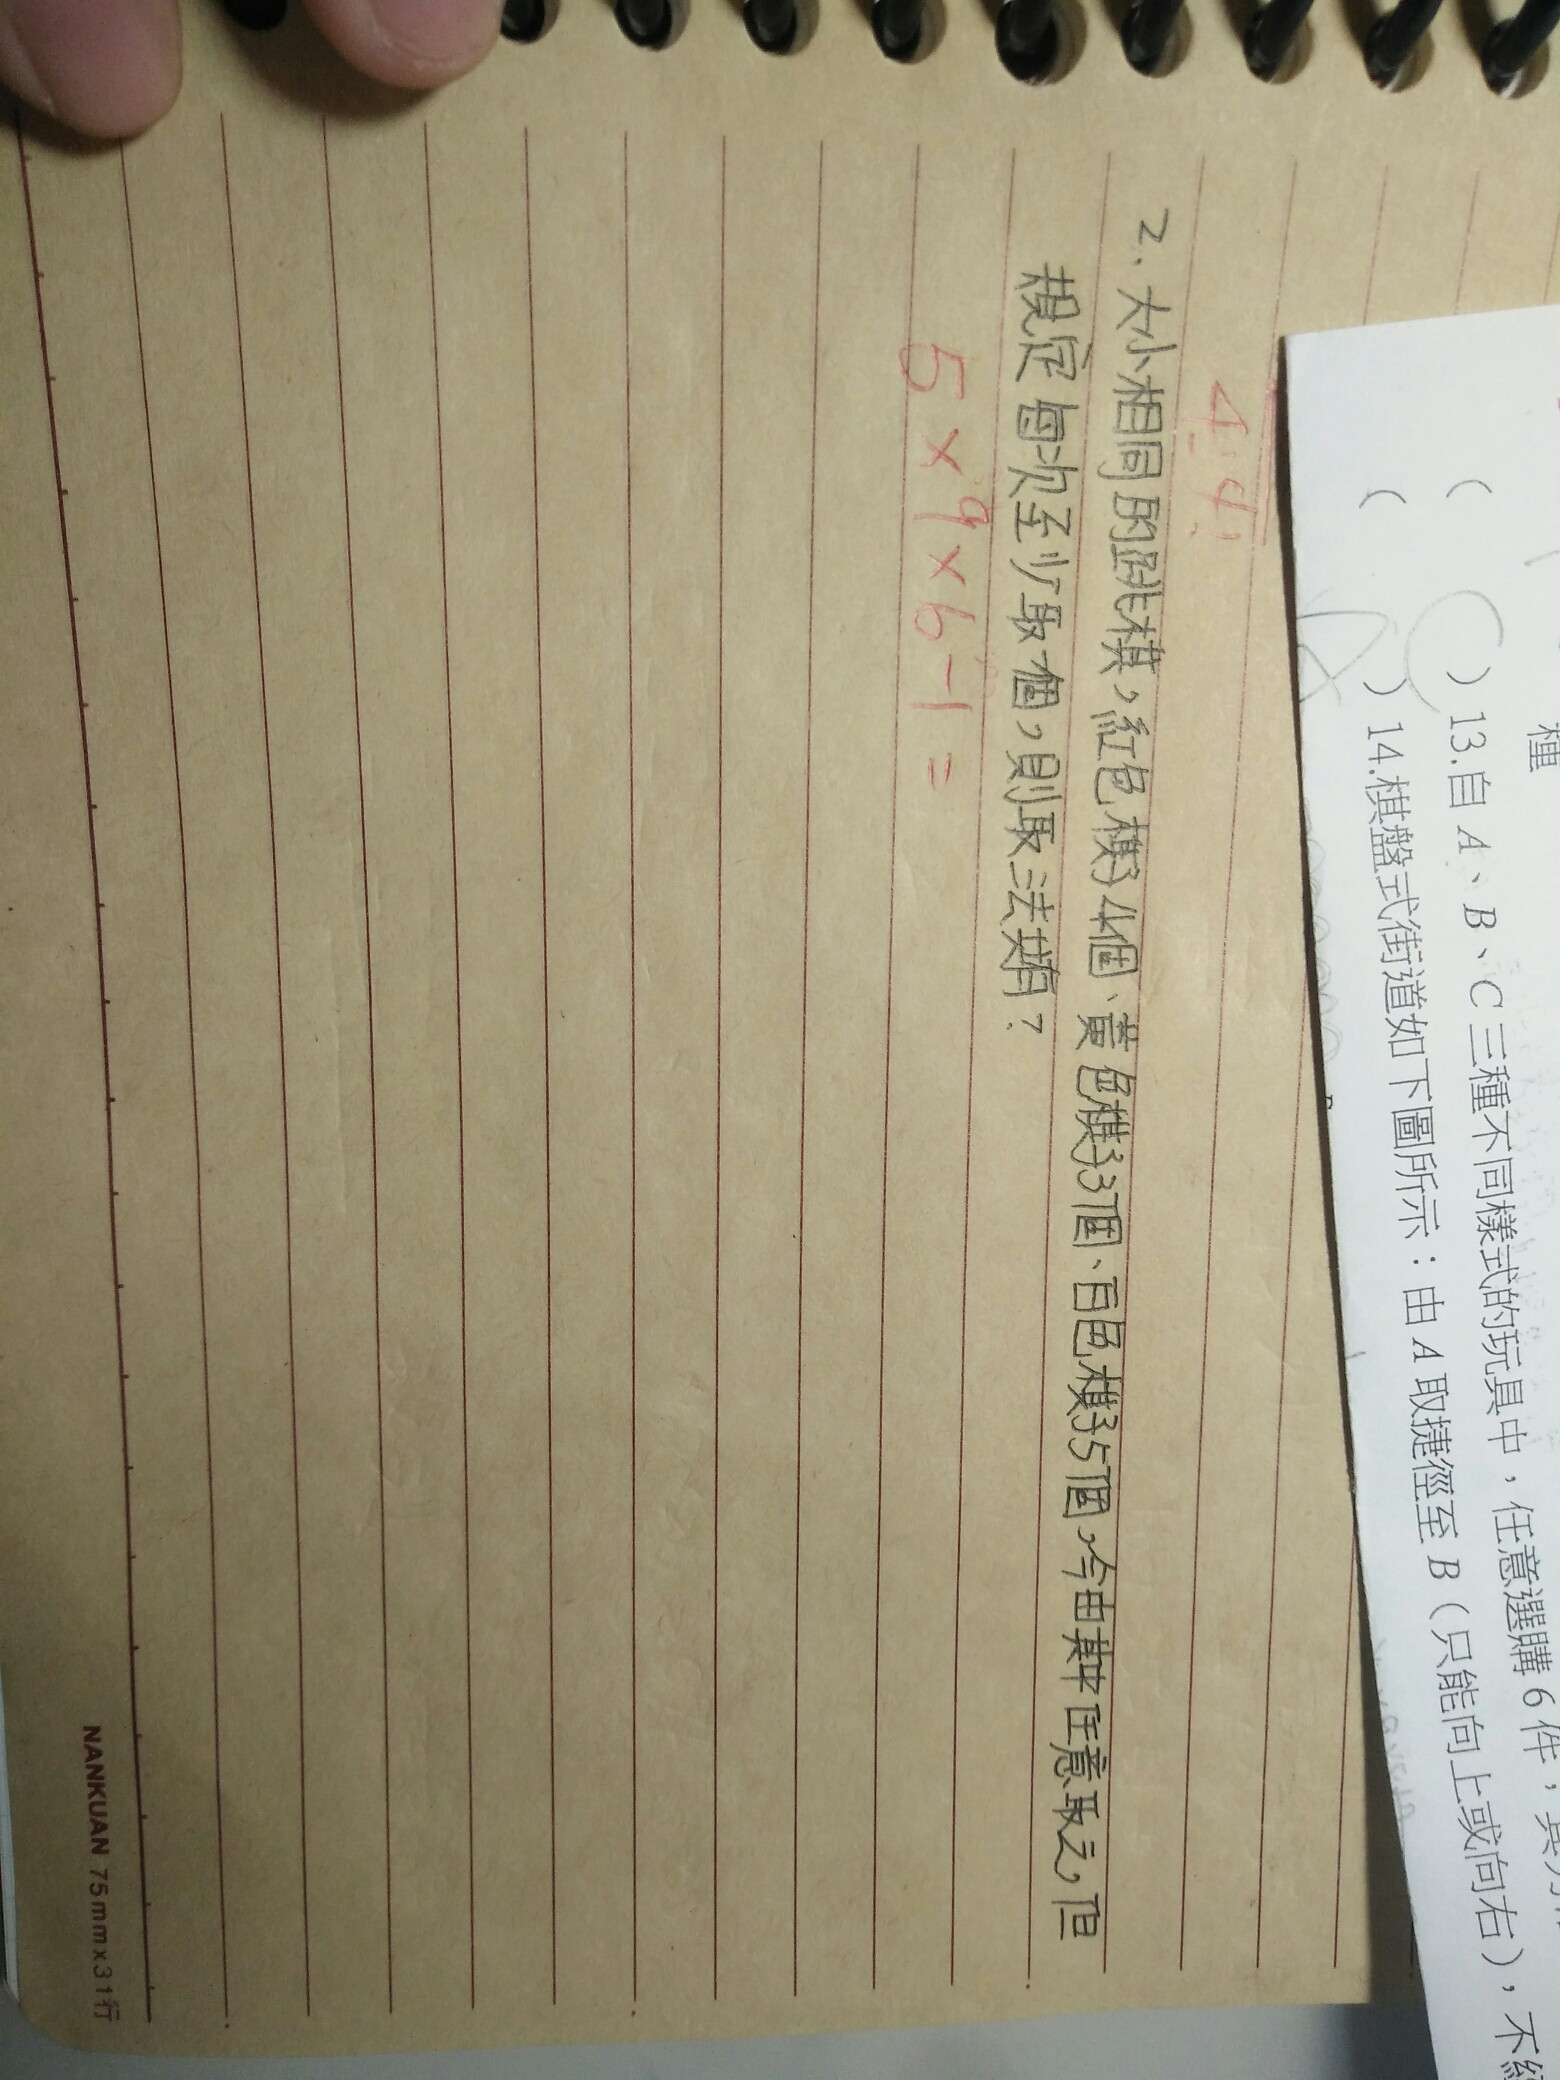 種
( ) 13.自 A、B、C 三種不同樣式的玩具中，任意選購 6 件，
( ) 14.棋盤式街道如下圖所示：由 A 取捷徑至 B（只能向上或向右），不經
4! 4!
2. 大小相同的跳棋，紅色棋子4個、黃色棋子3個、白色棋子5個，今由其中任意取之，但
規定每次至少取1個，則取法有?
5 × 9 × 6 - 1 =
NANKUAN 75mmx31行